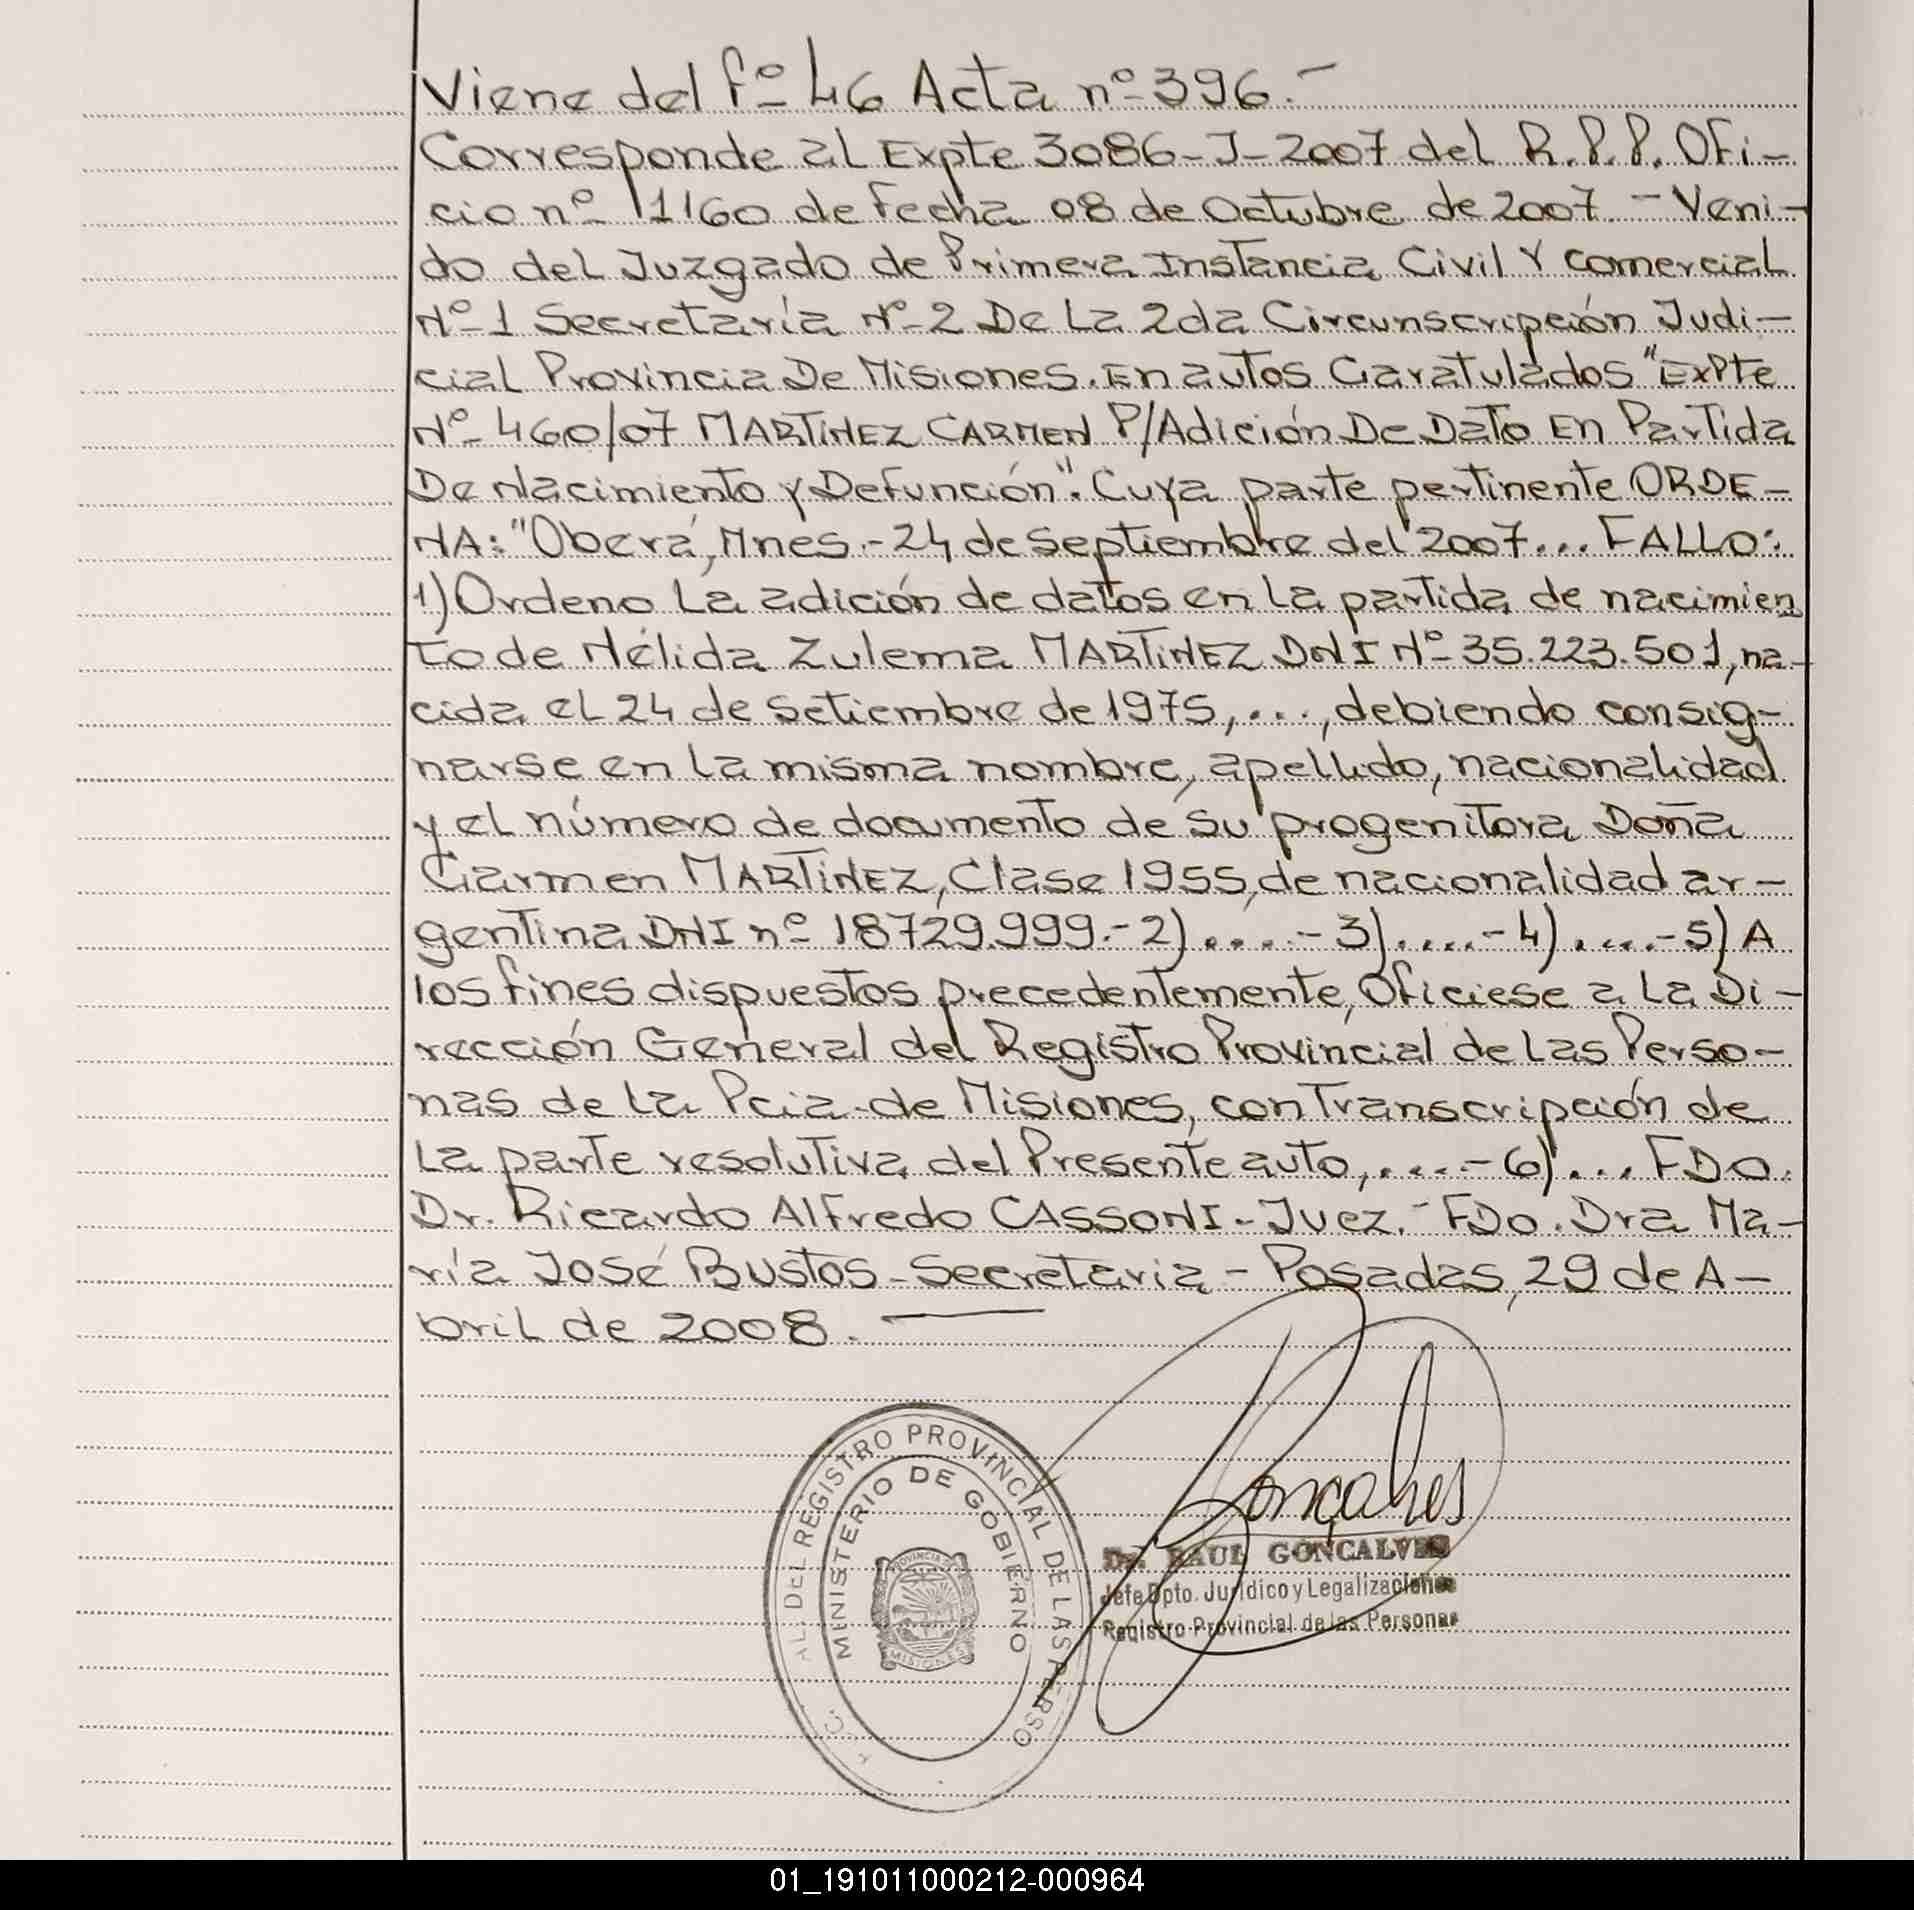 Viene del fº 46 Acta nº 396.-
Corresponde al Expte 3086-J-2007 del R.P.P. Ofi-
cio nº 1160 de Fecha 08 de Octubre de 2007.- Veni-
do del Juzgado de Primera Instancia Civil Y Comercial
Nº 1 Secretaría Nº 2 De La 2da Circunscripción Judi-
cial Provincia De Misiones. En autos Caratulados "Expte
Nº 460/07 MARTINEZ CARMEN P/Adición De Dato En Partida
De Nacimiento y Defunción". Cuya parte pertinente ORDE-
NA: "Oberá, Mnes.- 24 de septiembre del 2007... FALLO:
1) Ordeno La adición de datos en la partida de nacimien
to de Nélida Zulema MARTINEZ DNI Nº 35.223.501, na-
cida el 24 de setiembre de 1975,...., debiendo consig-
narse en la misma nombre, apellido, nacionalidad
y el número de documento de su progenitora Doña
Carmen MARTINEZ, Clase 1955, de nacionalidad ar-
gentina DNI nº 18729.999.- 2).....- 3).....- 4).....- 5) A
los fines dispuestos precedentemente, Ofíciese a La Di-
rección General del Registro Provincial de Las Perso-
nas de la Pcia. de Misiones, con Transcripción de
La parte resolutiva del Presente auto,.....- 6).... FDO.
Dr. Ricardo Alfredo CASSONI - Juez.- FDO. Dra Ma-
ría José Bustos - Secretaria - Posadas, 29 de A-
bril de 2008.
AL DEL REGISTRO PROVINCIAL DE LAS PERSO
MINISTERIO DE GOBIERNO
PROVINCIA DE
MISIONES
Goncalves
Dr. RAUL GONCALVES
Jefe Dpto. Jurídico y Legalizaciones
Registro Provincial de las Personas
01_191011000212-000964